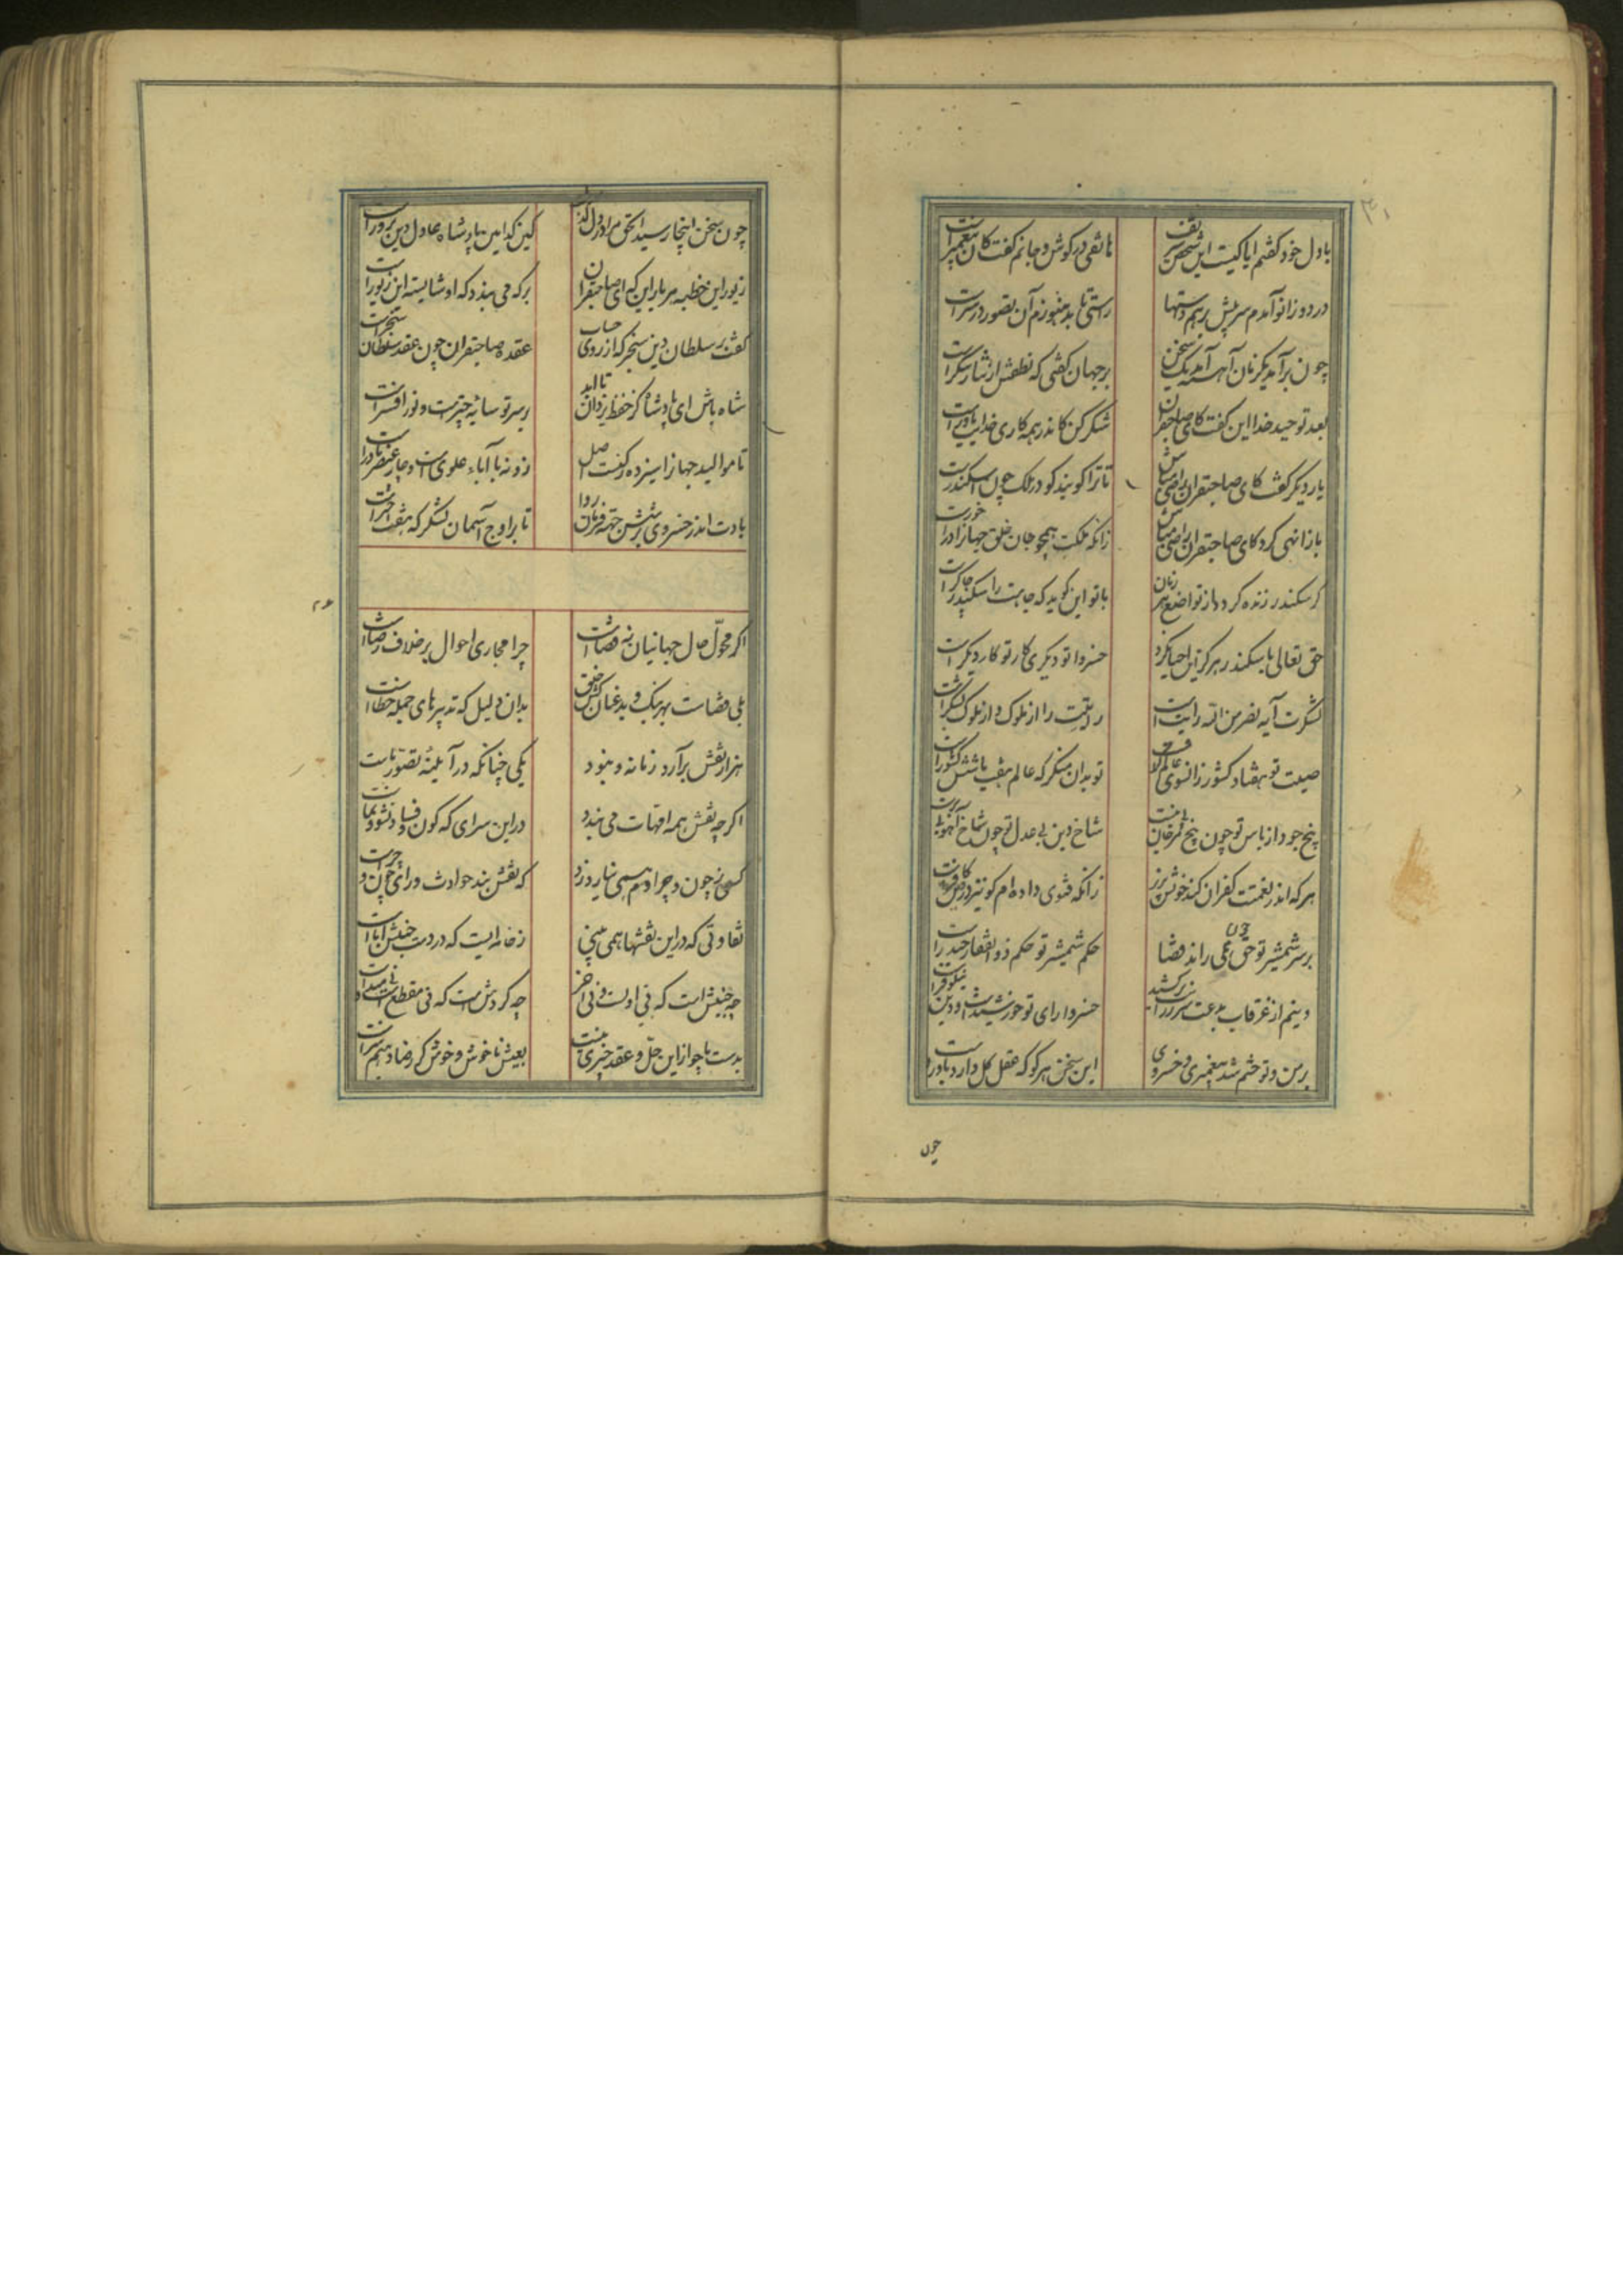 با دل خود گفتم ایا کیست این شخص شریف
هاتفی در گوش و جانم گفت کان پیغمبرست
در دو زانو آمدم سر پیش بر هم دستها
راستی باید هنوزم آن تصور در سرست
چون برآمد یکزمان آهسته آمد یک سخن
بر جهان گفتی که نطقش از نثار شکرست
بعد توحید خدا این گفت کای صاحبقران
شکر کن کاندر همه کاری خدایت یاورست
بار دیگر گفت کای صاحبقران راضی مباش
تا ترا گویند کو در ملک چون اسکندرست
باز انهی کرد کای صاحبقران راضی مباش
زانکه ملکت همچو جان خلق جهانرا درخورست
گر سکندر زنده گردد از تواضع هر زمان
با تو این گوید که جاهت را سکندر چاکرست
حق تعالی با سکندر هرگز این احسان نکرد
خسروا تو دیگری کار تو کار دیگرست
لشکرت آیه نصر من الله رایتست
رایتت را از ملوک و از ملوک لشکرست
صیت تو هفتاد کشور زانسوی عالم گرفت
تو بدان منگر که عالم هفت یا شش کشورست
بیخ جود از باس تو چون بیخ مرجان بی نمست
شاخ دین بی عدل تو چون شاخ آهو بی برست
هر که اندر نعمتت کفران کند خونش بریز
زانکه فتوی داده‌ام کو نیز در من کافرست
بر سر شمشیر تو چون حق همی راند قضا
حکم شمشیر تو حکم ذوالفقار حیدرست
دینم از غرقاب بدعت سر ز رایت برکشید
خسروا رای تو خورشیدست و دین نیلوفرست
بر من و تو ختم شد پیغمبری و خسروی
این سخن هر کو که عقل کل دارد باورست
چون
چون سخن اینجا رسید الحق مرا در دل گذشت
کین کدامین پادشاه عادل دین پرورست
زیور این خطبه هر بار این که ای صاحبقران
بر که می بندد که او شایسته این زیورست
گفت بر سلطان دین سنجر که از روی حساب
عقده صاحبقران چون عقد سلطان سنجرست
شاه باش ای پادشاه کز حفظ یزدان تا ابد
بر سر تو سایه چترست و نور افسرست
تا موالید جهانرا سیزده رکنست اصل
زو نه با آباء علوی است و چار عنصر مادرست
بادت اندر خسروی بر شش جهة فرمان روا
تا بر اوج آسمان لشکر که هفت اخترست
اگر محول حال جهانیان نه قضاست
چرا مجاری احوال بر خلاف رضاست
بلی قضاست بهر نیک و بد عنان کش خلق
بدان دلیل که تدبیرهای جمله خطاست
هزار نقش برآرد زمانه و نبود
یکی چنانکه در آیینه تصور ماست
اگر چه نقش همه امهات می بندد
در این سرای که کون و فساد نشو و نماست
کسی ز چون و چرا دم همی نیارد زد
که نقش بند حوادث ورای چون و چراست
تفاوتی که در این نقشها همی بینی
ز خامه ایست که در دست جنبش آباست
چه جنبش است که بی اولست و بی آخر
چه گردش است که نی مقطع است نی مبداست
بدست ما چو از این حل و عقد چیزی نیست
بعیش ناخوش و خوش گر رضا دهیم سزاست